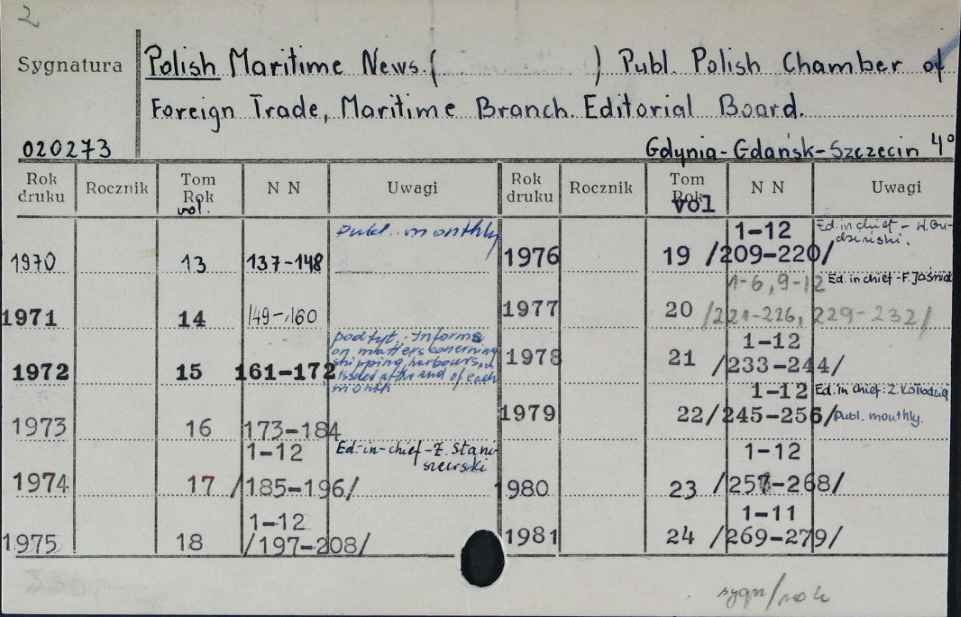 2
Sygnatura Polish Maritime News. ( ) Publ. Polish Chamber of
Foreign Trade, Maritime Branch. Editorial Board.
020273 Gdynia-Gdańsk-Szczecin 4°
Rok druku Rocznik Tom Rok vol. N N Uwagi Rok druku Rocznik Tom Rok vol N N Uwagi
1970 13 137-148 Publ. monthly
1971 14 149-160
1972 15 161-172 podtyt. Informs on matters concerning shipping, harbours, trade at the end of each month
1973 16 173-184
1974 17 1-12 /185-196/ Ed.-in-chief-Z. Staniszewski
1975 18 1-12 /197-208/
1976 19 1-12 /209-220/ Ed. in chief - W.
1977 20 1-6, 9-12 /221-226, 229-232/ Ed. in chief - F.
1978 21 1-12 /233-244/
1979 22 1-12 /245-256/ Ed. in chief: Z. Publ. monthly.
1980 23 1-12 /257-268/
1981 24 1-11 /269-279/
sygn/rok